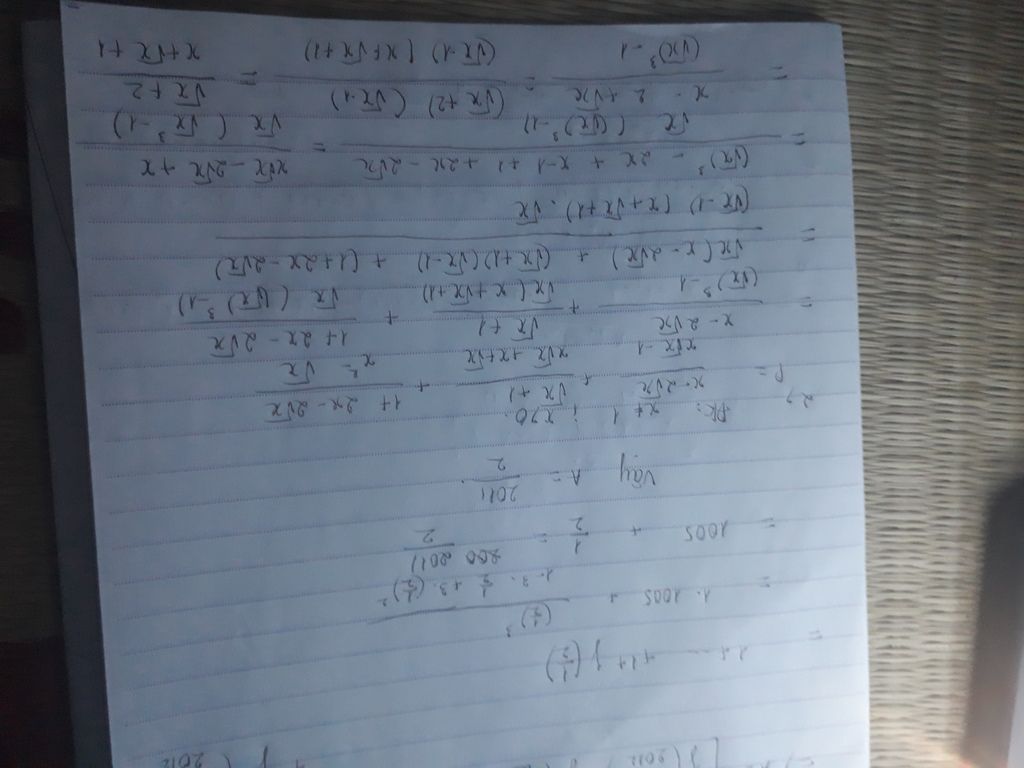 => [f(2012
= 1+ ... +1+ f(1/2)
= 1.1005 + (1/2)³ / (1-3.1/2+3.(1/2)²)
= 1005 + 1/2 = 2011/2
Vậy A = 2011/2.
2> ĐK: x≠1 ; x>0.
P = (x-2√x)/(x√x-1) + (√x+1)/(x√x+x+√x) + (1+2x-2√x)/(x²-√x)
= (x-2√x)/((√x)³-1) + (√x+1)/(√x(x+√x+1)) + (1+2x-2√x)/(√x((√x)³-1))
= (√x(x-2√x) + (√x+1)(√x-1) + (1+2x-2√x))/((√x-1)(x+√x+1).√x)
= ((√x)³ - 2x + x-1 +1 +2x - 2√x)/(√x((√x)³-1)) = (x√x-2√x+x)/(√x(√x³-1))
= (x-2+√x)/((√x)³-1) = ((√x+2)(√x-1))/((√x-1)(x+√x+1)) = (√x+2)/(x+√x+1)